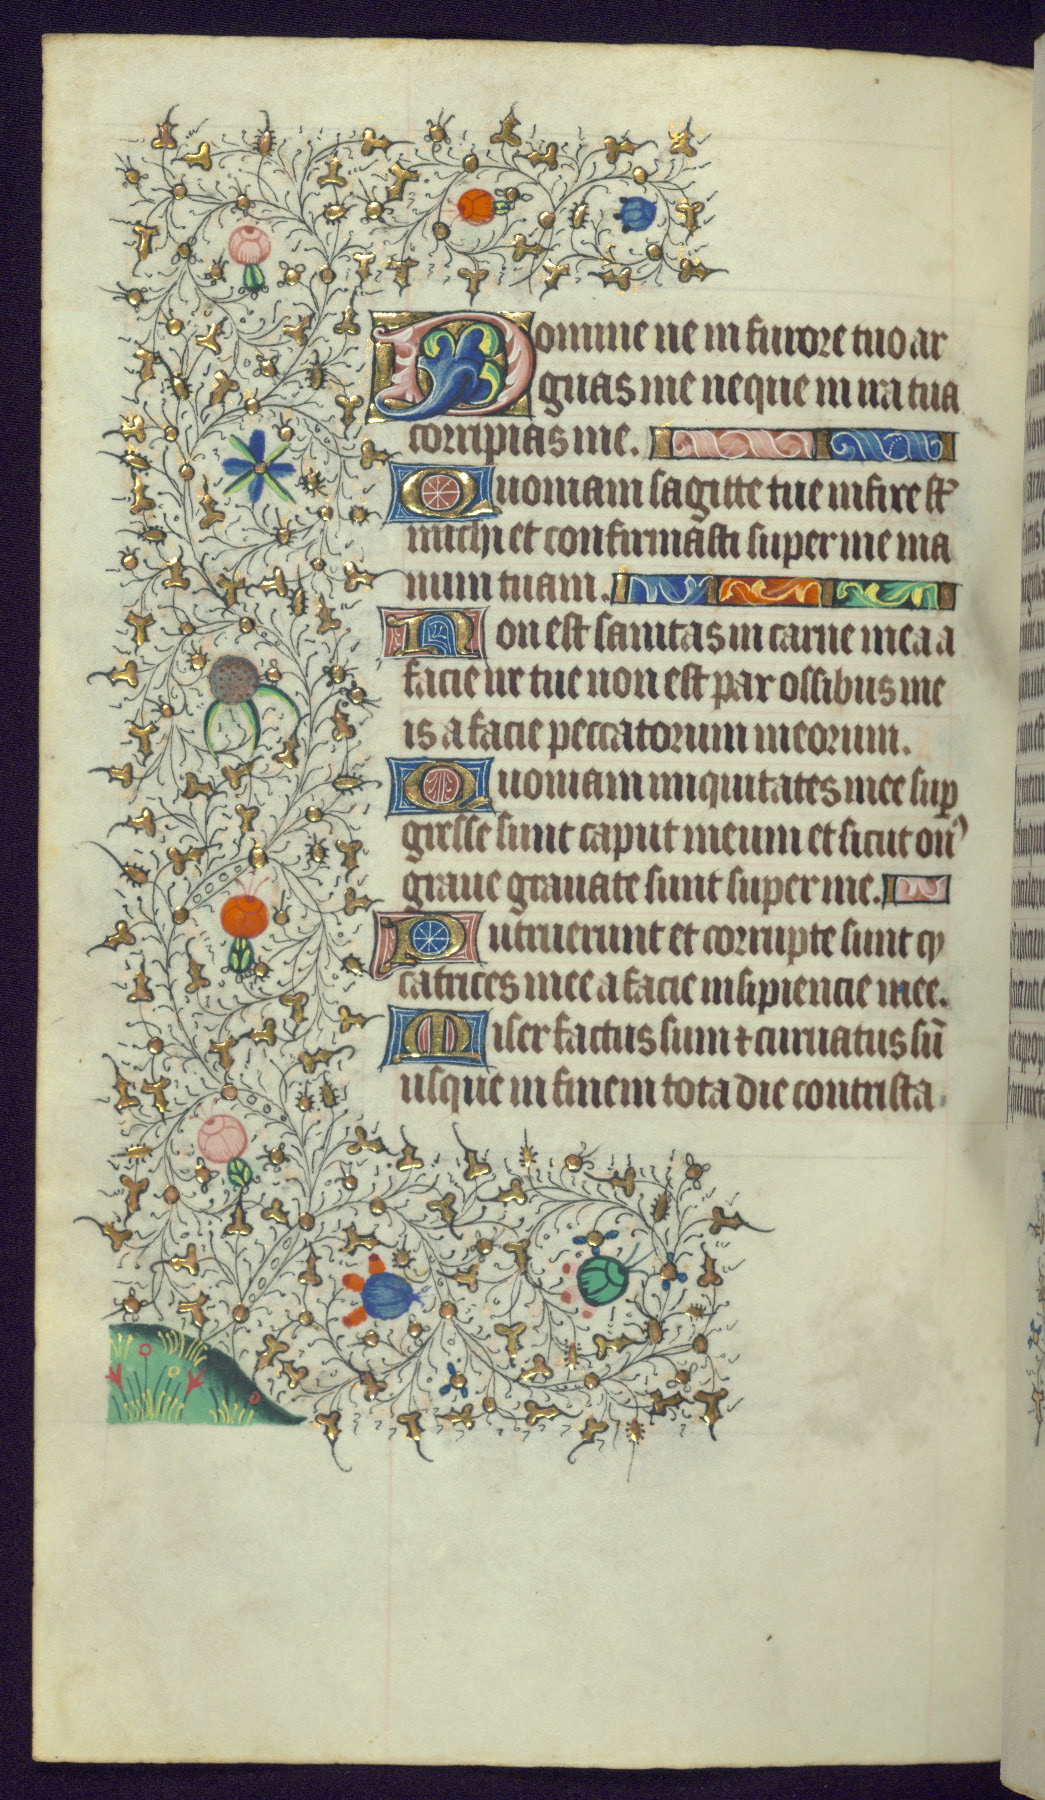 Domine ne in furore tuo ar
guas me neque in ira tua
corripias me.
Quoniam sagitte tue infixe sūt
michi et confirmasti super me ma
num tuam.
Non est sanitas in carne mea a
facie ire tue non est pax ossibus me
is a facie peccatorum meorum.
Quoniam iniquitates mee sup
gresse sunt caput meum et sicut onꝰ
graue grauate sunt super me.
Putruerunt et corrupte sunt cy
catrices mee a facie insipiencie mee.
Miser factus sum ⁊ curuatus sū
usque in finem tota die contrista